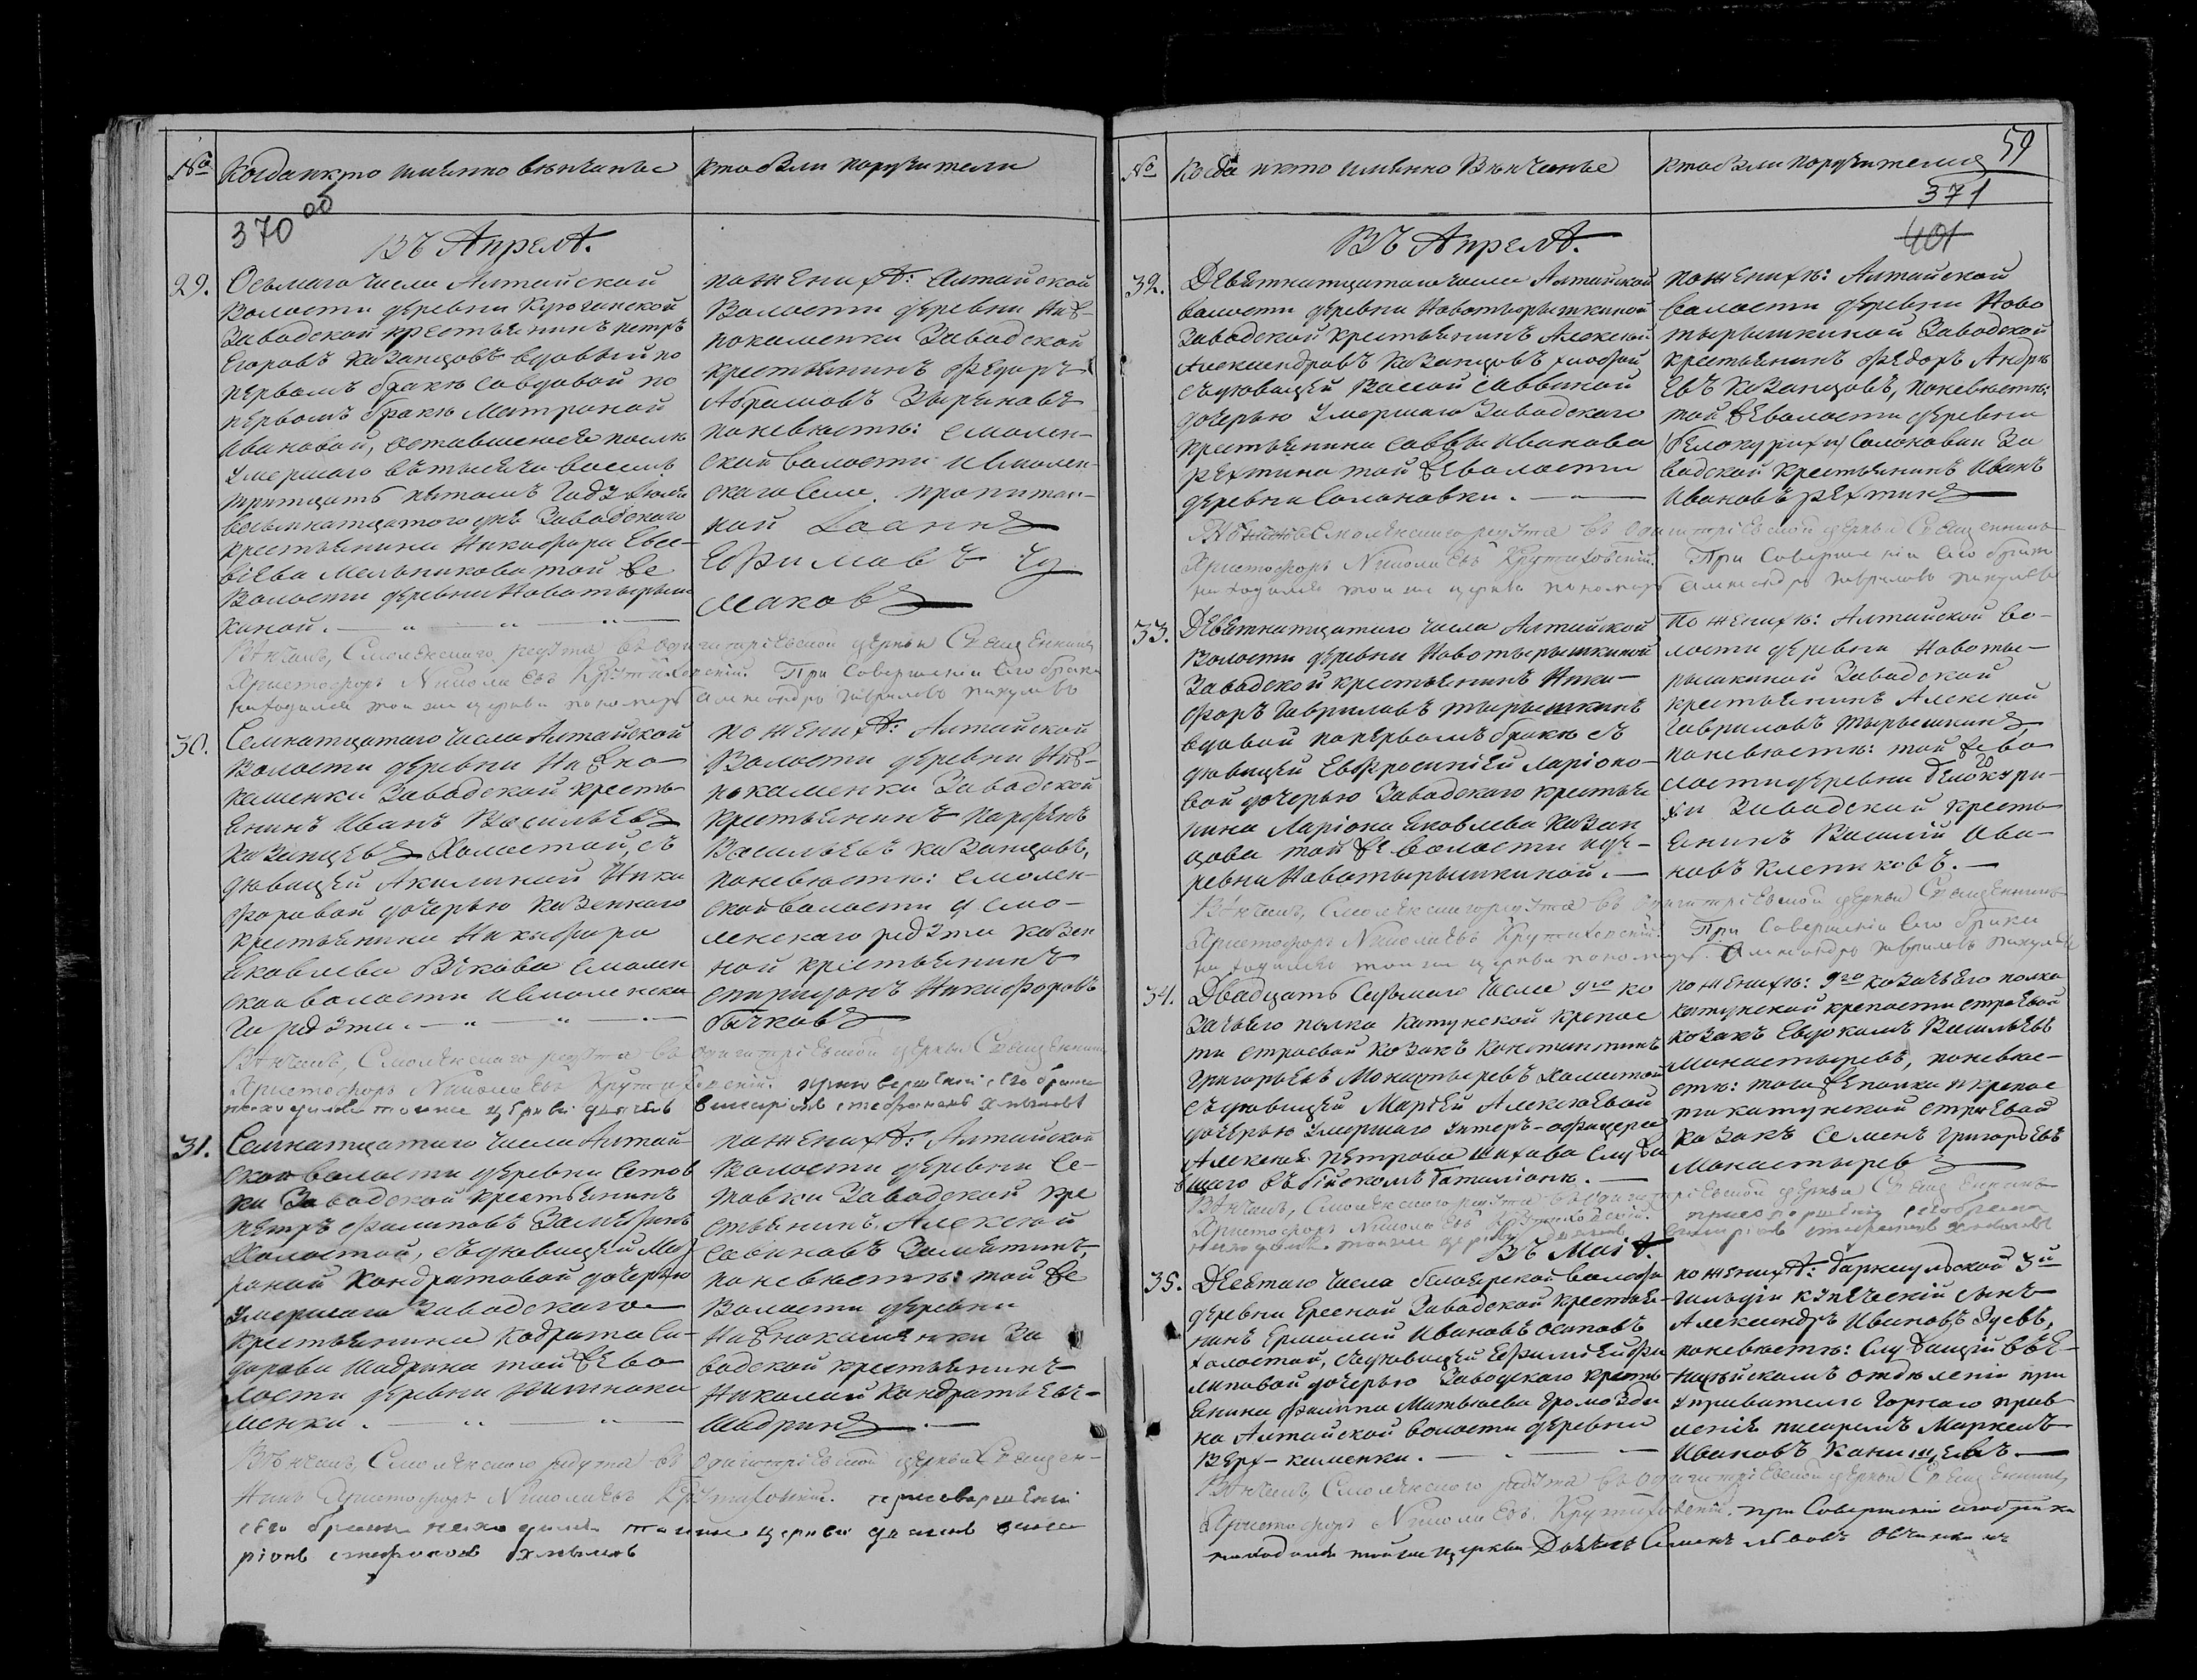 №
Когда и кто именно венчаные
кто были поручители
370 об
ВЪ Апреле.
29. Осьмаго числа Алтайской
волости деревни Куюганской
заводской крестьянинъ петръ
Егоровъ казанцовъ вдовый по
первомъ браке со вдовой по
первомъ браке Матроной
Ивановой, оставшеюся после
умершаго въ тысяча восемь
тритцать пятомъ году
восемнатцатого дня заводского
крестьянина Никифора Евсе-
віева Мельникова той же
волости деревни Новотырыш
киной.
по женихе: Алтайской
Волости деревни Ниж-
нокаменки Заводской
крестьянинъ Федоръ
Абрамовъ Зыряновъ
по невесте: Смолен-
ской волости и Смолен-
скаго села пропитан-
ной Іоаннъ
Ефимовъ
Венчалъ, Смоленскаго редута въ одигитріевской церкви Священникъ
Христофоръ Николаевъ Крутиховский. При Совершеніи сего брака
находился той же церкви пономарь Александръ Гавриловъ
30. Семнатцатаго числа Алтайской
Волости деревни Нижно-
каменки Заводской кресть-
янинъ Иванъ Васильевъ
казанцевъ холостой, съ
девицей Акилиной Ники
форовой дочерью казеннаго
крестьянина Никифора
Яковлева Бычкова Смолен
ской волости и Смоленска
го редута.
по женихе: Алтайской
Волости деревни Ниж-
нокаменки Заводской
крестьянинъ парфенъ
Васильевъ казанцовъ,
по невесте: Смолен-
ской волости и Смо-
ленскаго редута казен
ной крестьянинъ
спиридонъ Никифоровъ
бычковъ
Венчалъ, Смоленскаго редута въ одигитріевской церкви Священникъ
Христофоръ Николаевъ Крутиховский. при совершеніи сего брака
находился тойже церкви дьячекъ виссаріонъ стефановъ хмылевъ
31. Семнатцатаго числа Алтай-
ской волости деревни Сетов
ки Заводской крестьянинъ
петръ Филиповъ Замятинъ
Холостой, съ девицей Мат
роной Кондратовой дочерью
умершаго Заводскаго
крестьянина Кодрата Си-
дорова Шадрина той же во-
лости деревни Нижнока
менки.
по женихе: Алтайской
Волости деревни Се-
товки Заводской кре
стьянинъ Алексей
Савиновъ Замятинъ,
по невесте: той же
Волости деревни
Нижнокаменки За
водской крестьянинъ
Николай Кондратьевъ
Шадринъ
Венчалъ, Смоленскаго редута въ одигитріевской церкви Священ-
никъ Христофоръ Николаевъ Крутиховский. присовершеніи
сего брака находился тойже церкви дьячекъ висса
ріонъ стефановъ хмылевъ
№
Когда и кто именно Венчаные
кто были поручители
59
371
401
ВЪ Апреле.
32. Девятнатцатаго числа Алтайской
волости деревни Новотырышкиной
Заводской крестьянинъ Алексей
Александровъ казанцовъ холостой
съ девицей Вассой Саввиной
дочерью умершаго Заводскаго
крестьянина Саввы Иванова
Рехтина той же волости
деревни Солоновки.
по женихе: Алтайской
волости деревни Ново
тырышкиной Заводской
крестьянинъ Федоръ Андре
евъ казанцовъ, по невесте:
той же волости деревни
Солоновки За
водской крестьянинъ Иванъ
Ивановъ Рехтинъ
Смоленскаго редута въ одигитріевской церкви Священникъ
Христофоръ Николаевъ Крутиховский. При Совершеніи сего брака
находился той же церкви пономарь Александръ Гавриловъ
33. Девятнатцатаго числа Алтайской
Волости деревни Новотырышкиной
Заводской крестьянинъ Ники-
форъ Гавриловъ тырышкинъ
вдовой по первомъ браке съ
девицей Евфросиніей Ларіоно-
вой дочерью Заводскаго крестья
нина Ларіона Яковлева Казан
цова той же волости де-
ревни Новотырышкиной.
По женихе: Алтайской во-
лости деревни Новоты-
рышкиной Заводской
крестьянинъ Алексей
Гавриловъ тырышкинъ
по невесте: той же во
лости деревни белокури-
хи Заводской кресть
янинъ Василій Ива-
новъ Клепиковъ.
Венчалъ, Смоленскаго редута въ одигитріевской церкви Священникъ
Христофоръ Николаевъ Крутиховский. При Совершеніи сего брака
находился той же церкви пономарь Александръ Гавриловъ
34. Двадцать Седьмаго числа 9го ка
зачьего полка катунской крепос
ти строевой козакъ Константинъ
Григорьевъ Монастыревъ холостой
съ девицей Маріей Алексеевой
дочерью умершаго унтеръ-офицера
Алексея петрова Шахова служи
вшаго въ бійскомъ баталіоне.
по женихе: 9го козачьего полка
катунской крепости строевой
козакъ Евдокимъ Васильевъ
Монастыревъ, по невес-
те: того же полка и крепос
ти катунской строевой
козакъ Семенъ Григорьевъ
Монастыревъ
Венчалъ, Смоленскаго редута въ одигитріевской церкви Священникъ
Христофоръ Николаевъ Крутиховский. присовершеніи сего брака
находился тойже церкви дьячекъ виссаріонъ стефановъ хмылевъ
ВЪ Маіе.
35. Десятаго числа белоярской волости
деревни Ересной Заводской крестья-
нинъ Ермолай Ивановъ Осиповъ
холостой, съ девицей Ефиміей Фи
липовой дочерью Заводскаго кресть-
янина Филипа Матвеева Громозди
на Алтайской волости деревни
Верх-каменки.
по женихе: барнаульской 3й
гильдіи купеческій сынъ
Александръ Ивановъ Зуевъ,
по невесте: служащій въ
отделеніи при
управителе Горнаго прав
ленія писаремъ Маркелъ
Ивановъ
Венчалъ Смоленскаго редута въ одигитріевской церкви Священникъ
Христофоръ Николаевъ Крутиховский. при Совершеніи сего брака
находился той же церкви Дьячекъ Семенъ Львовъ